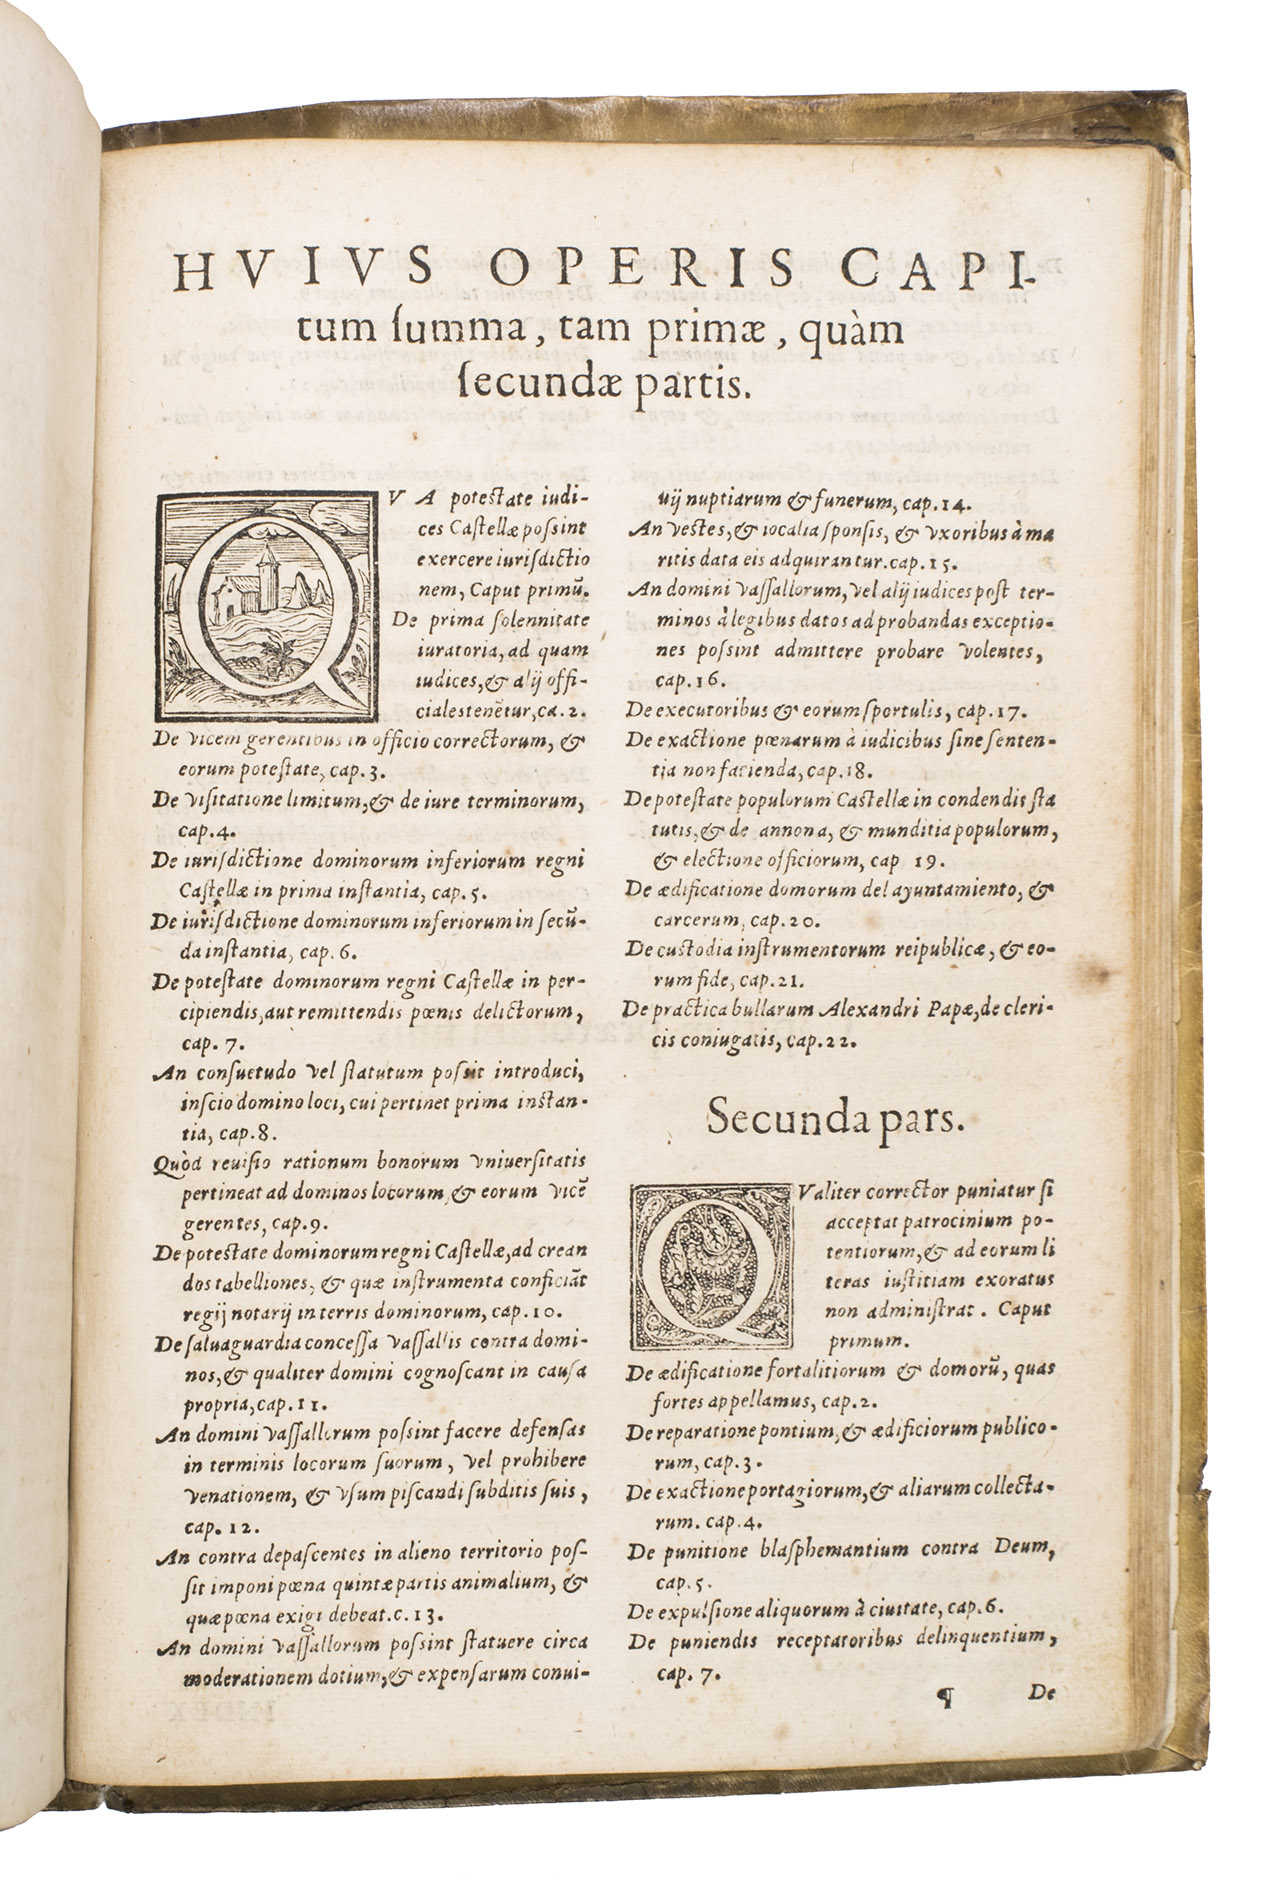 HVIVS OPERIS CAPI-
tum ſumma, tam primæ, quàm
ſecundæ partis.
QVA poteſtate iudi-
ces Caſtellæ poſsint
exercere iuriſdictio
nem, Caput primũ.
De prima ſolennitate
iuratoria, ad quam
iudices, & alij offi-
ciales tenẽtur, ca. 2.
De vicem gerentibus in officio correctorum, &
eorum poteſtate, cap. 3.
De viſitatione limitum, & de iure terminorum,
cap. 4.
De iuriſdictione dominorum inferiorum regni
Caſtellæ in prima inſtantia, cap. 5.
De iuriſdictione dominorum inferiorum in ſecũ-
da inſtantia, cap. 6.
De poteſtate dominorum regni Caſtellæ in per-
cipiendis, aut remittendis pœnis delictorum,
cap. 7.
An conſuetudo vel ſtatutum poſsit introduci,
inſcio domino loci, cui pertinet prima inſtan-
tia, cap. 8.
Quòd reuiſio rationum bonorum vniuerſitatis
pertineat ad dominos locorum, & eorum vicẽ
gerentes, cap. 9.
De poteſtate dominorum regni Caſtellæ, ad crean
dos tabelliones, & quæ inſtrumenta conficiãt
regij notarij in terris dominorum, cap. 10.
De ſaluaguardia conceſſa vaſſallis contra domi-
nos, & qualiter domini cognoſcant in cauſa
propria, cap. 11.
An domini vaſſallorum poſsint facere defenſas
in terminis locorum ſuorum, vel prohibere
venationem, & vſum piſcandi ſubditis ſuis,
cap. 12.
An contra depaſcentes in alieno territorio poſ-
ſit imponi pœna quintæ partis animalium, &
quæ pœna exigi debeat. c. 13.
An domini vaſſallorum poſsint ſtatuere circa
moderationem dotium, & expenſarum conui-
uij nuptiarum & funerum, cap. 14.
An veſtes, & iocalia ſponſis, & vxoribus à ma
ritis data eis adquirantur. cap. 15.
An domini vaſſallorum, vel alij iudices poſt ter-
minos à legibus datos ad probandas exceptio-
nes poſsint admittere probare volentes,
cap. 16.
De executoribus & eorum ſportulis, cap. 17.
De exactione pœnarum à iudicibus ſine ſenten-
tia non facienda, cap. 18.
De poteſtate populorum Caſtellæ in condendis ſta
tutis, & de annona, & munditia populorum,
& electione officiorum, cap 19.
De ædificatione domorum del ayuntamiento, &
carcerum, cap. 20.
De cuſtodia inſtrumentorum reipublicæ, & eo-
rum fide, cap. 21.
De practica bullarum Alexandri Papæ, de cleri-
cis coniugatis, cap. 22.
Secunda pars.
QValiter corrector puniatur ſi
acceptat patrocinium po-
tentiorum, & ad eorum li
teras iuſtitiam exoratus
non adminiſtrat. Caput
primum.
De ædificatione fortalitiorum & domorũ, quas
fortes appellamus, cap. 2.
De reparatione pontium, & ædificiorum publico-
rum, cap. 3.
De exactione portagiorum, & aliarum collecta-
rum. cap. 4.
De punitione blaſphemantium contra Deum,
cap. 5.
De expulſione aliquorum à ciuitate, cap. 6.
De puniendis receptatoribus delinquentium,
cap. 7.
¶ De